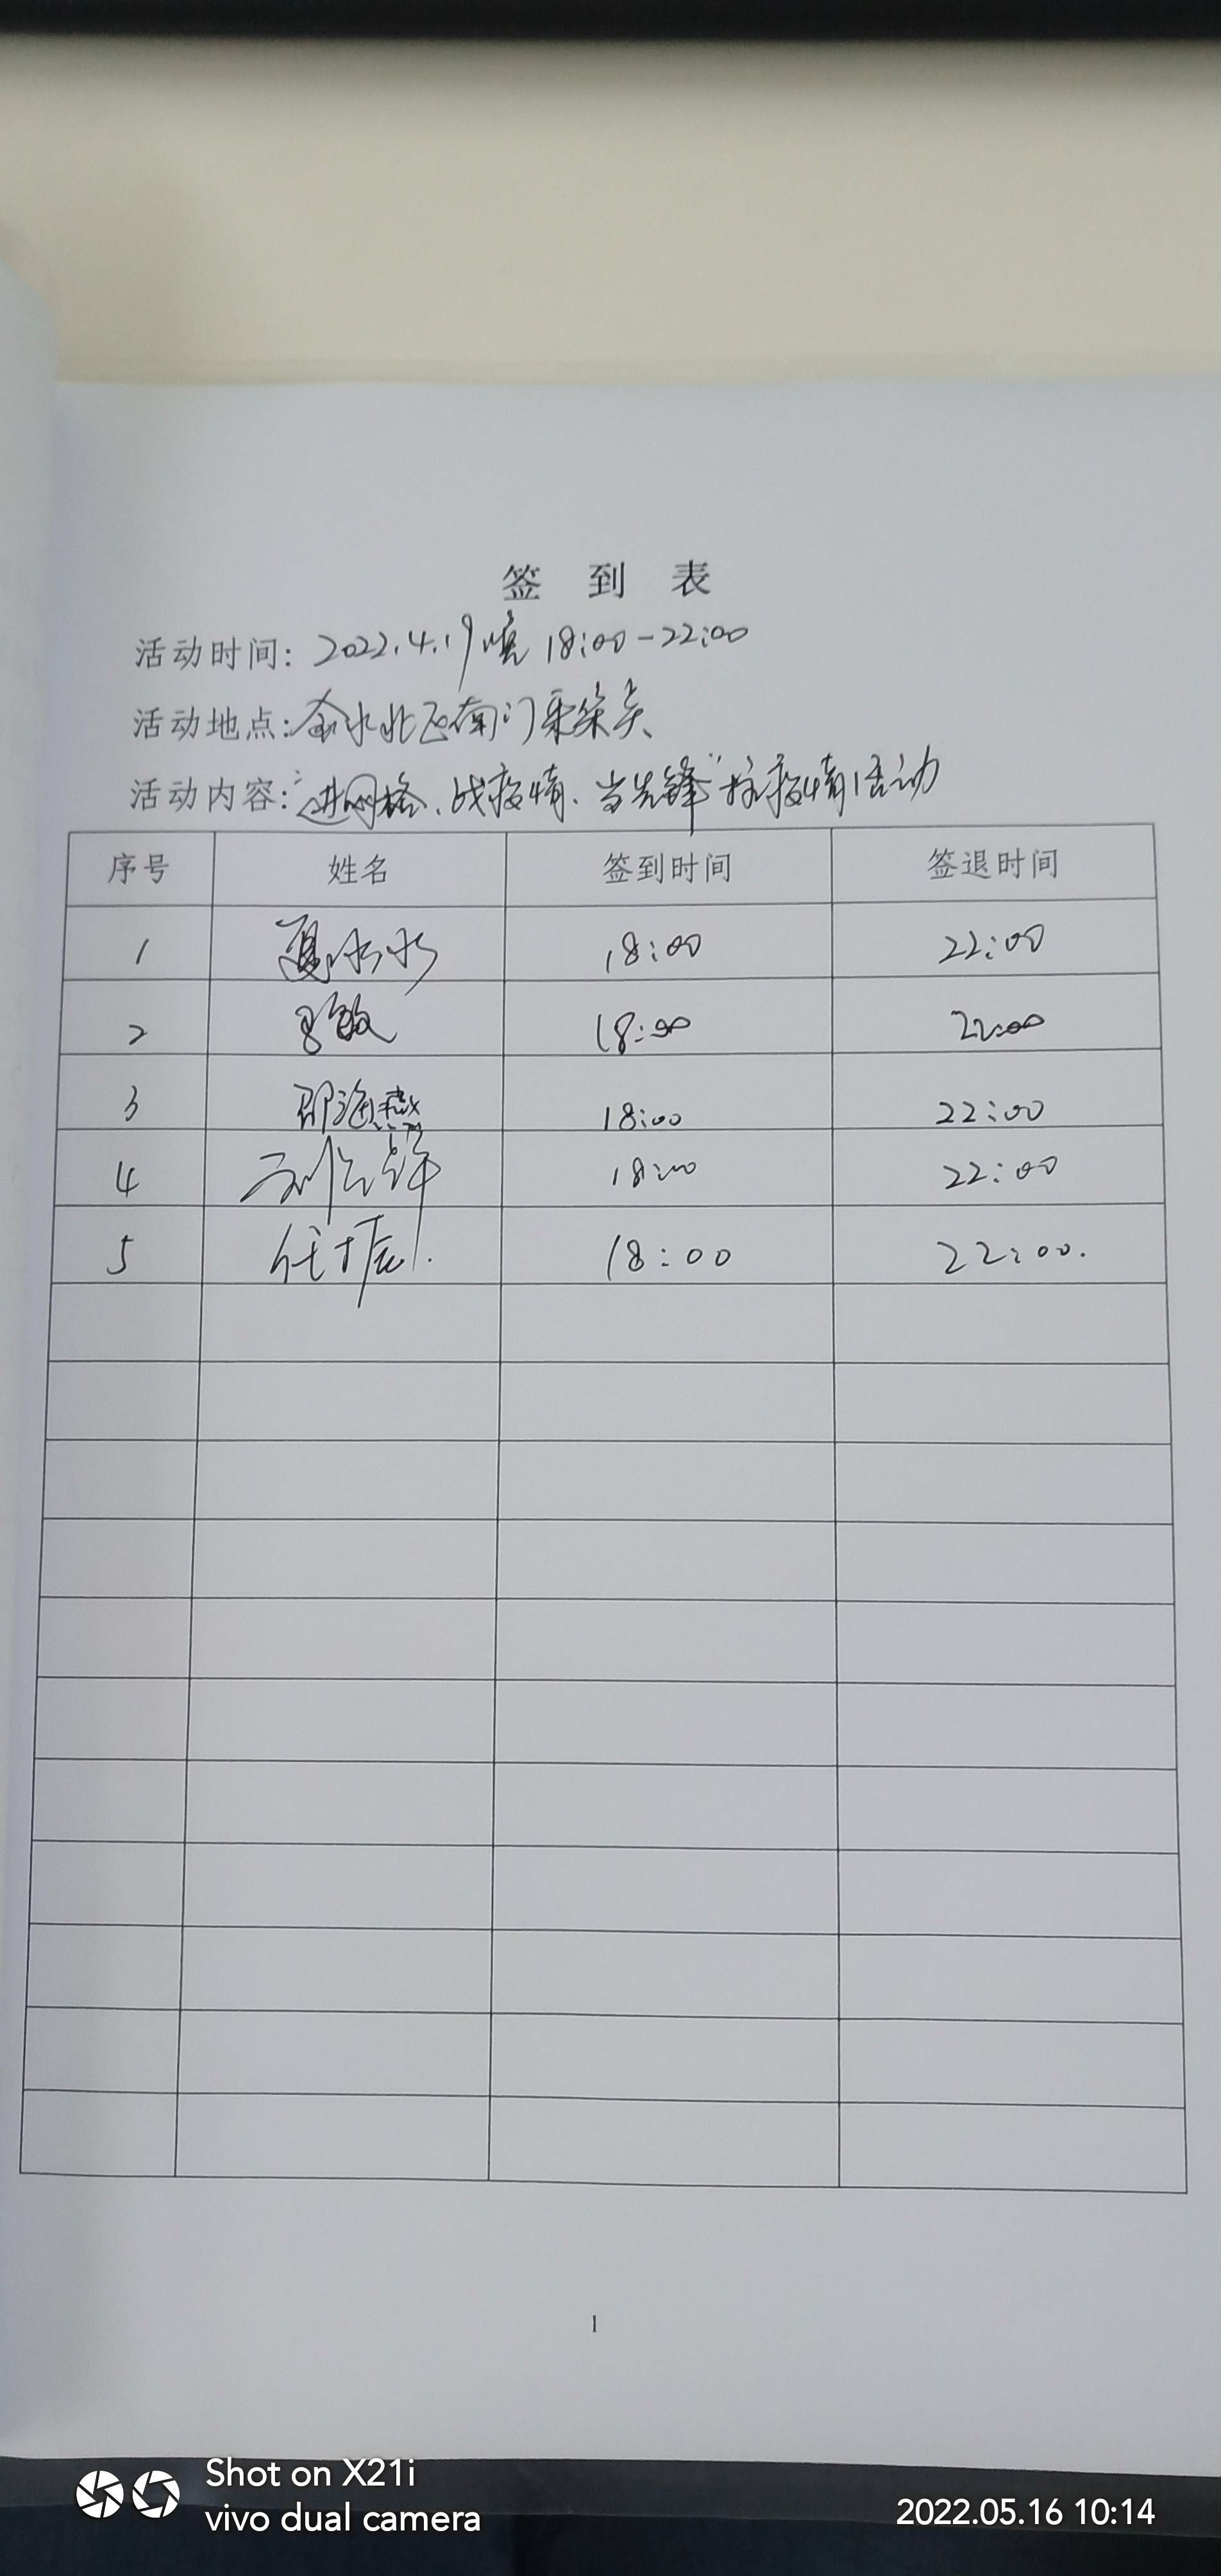 签 到 表
活动时间: 2022.4.19晚 18:00-22:00
活动地点: 金水北区南门采集点
活动内容: “进网格、战疫情、当先锋”抗疫情活动
序号 姓名 签到时间 签退时间
1 夏冰冰 18:00 22:00
2 敏 18:00 22:00
3 邵海燕 18:00 22:00
4 刘 锋 18:00 22:00
5 任振 18:00 22:00.
1
Shot on X21i
vivo dual camera
2022.05.16 10:14